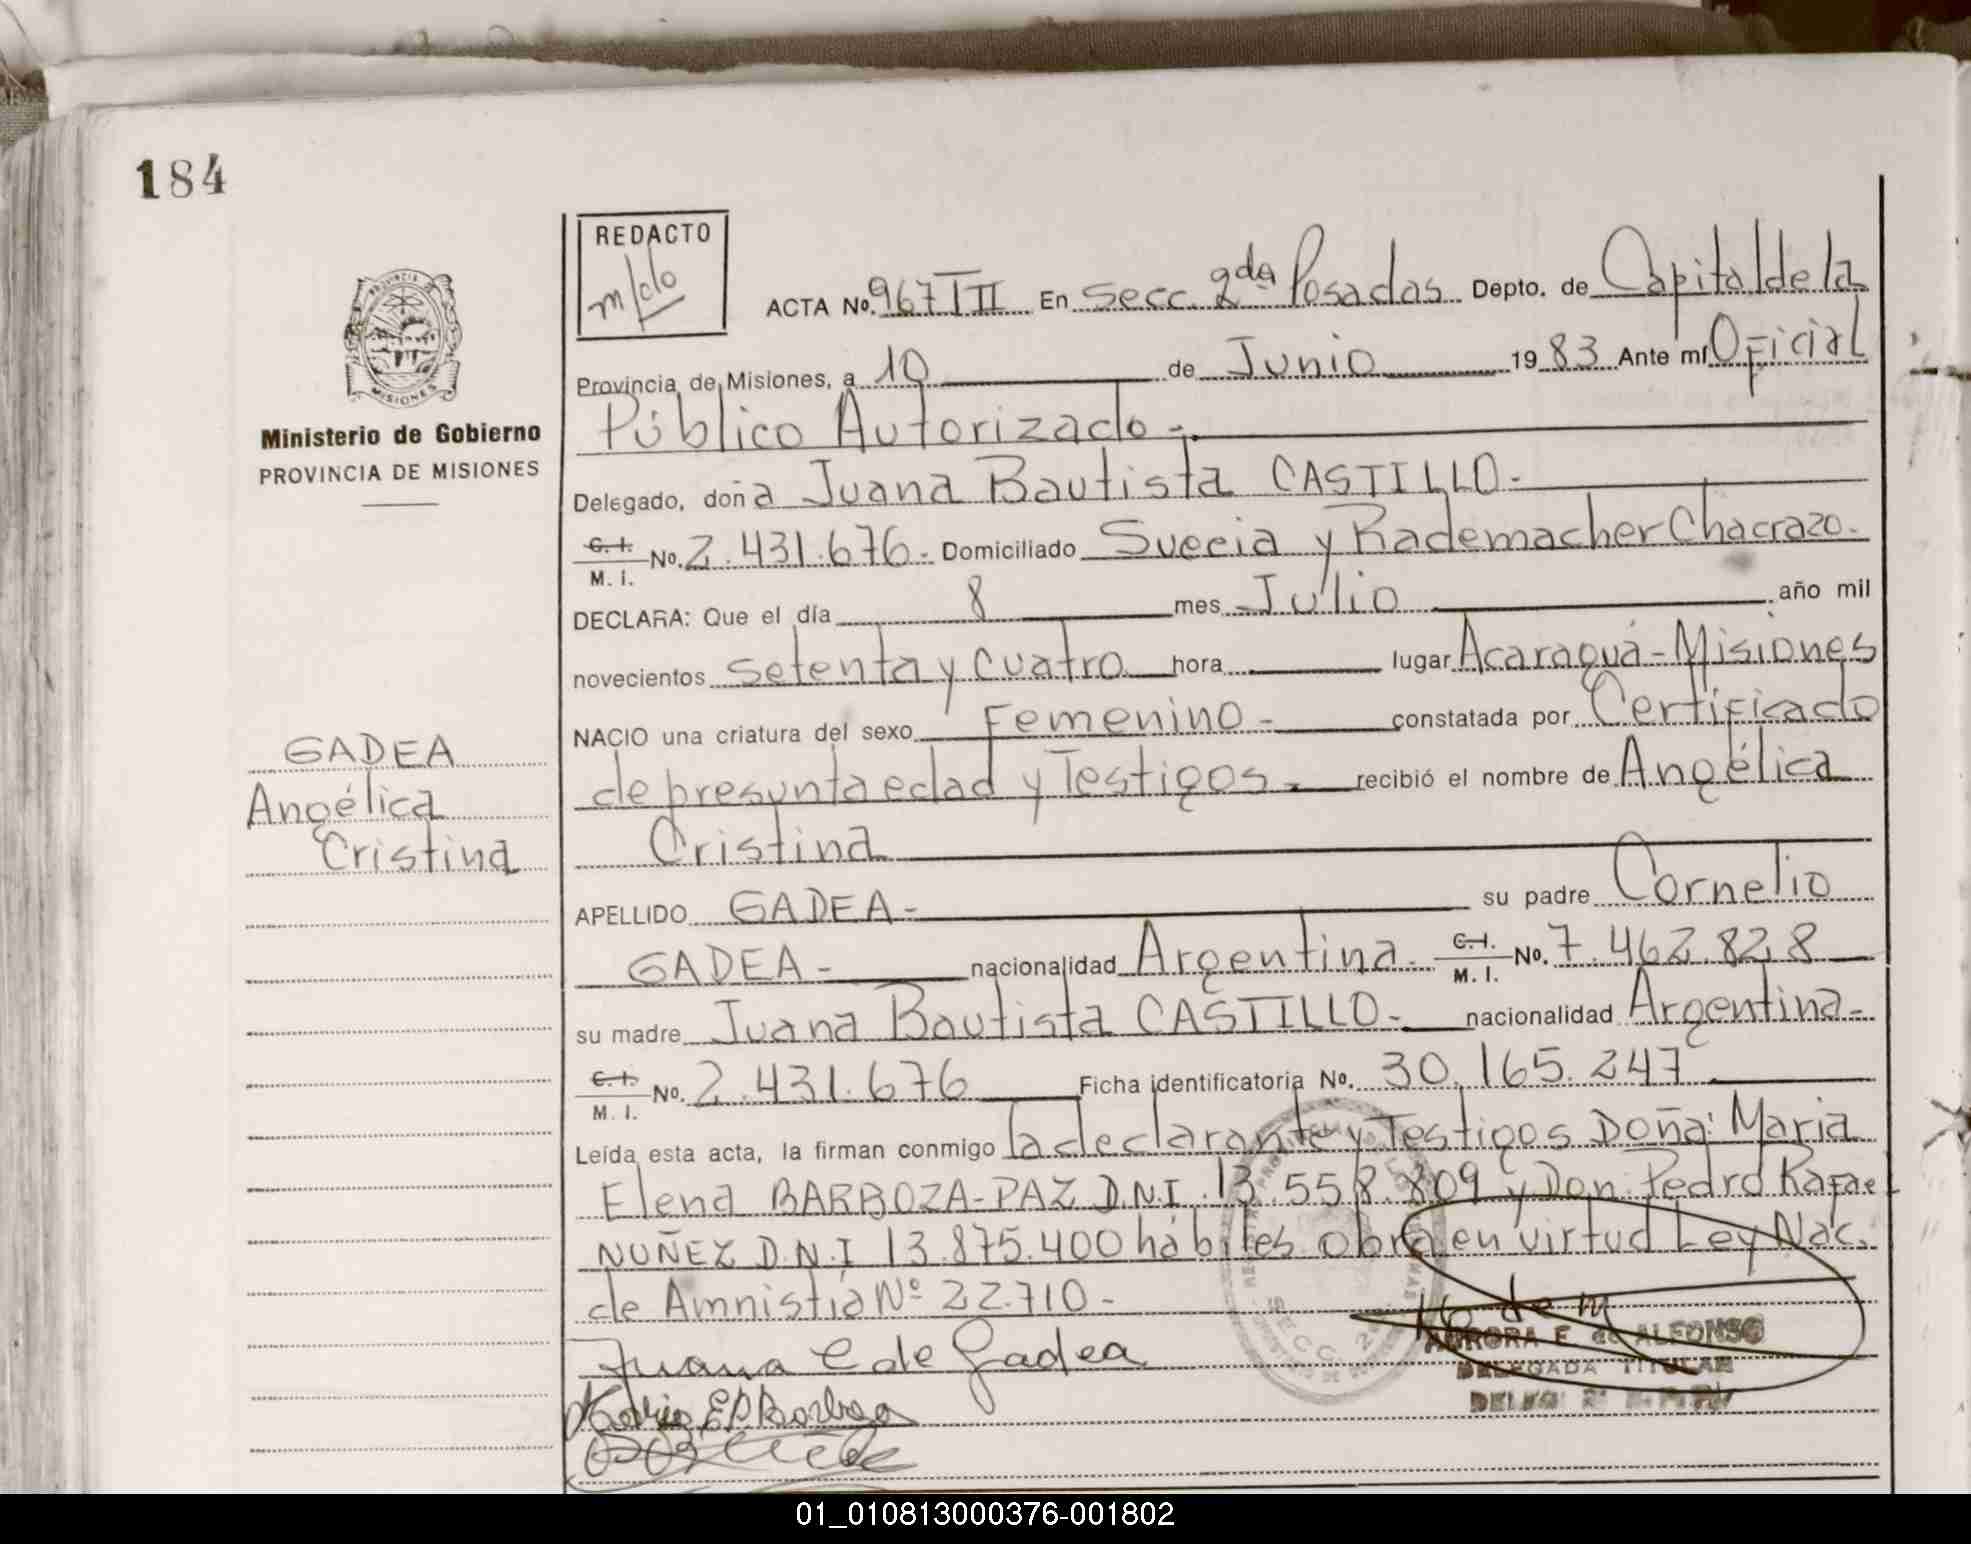 184
REDACTO
ACTA No. 967 TIII En Secc. 2da Posadas Depto. de Capital de la
Provincia de Misiones, a 10 de Junio 1983 Ante mí Oficial
Público Autorizado -
Delegado, doña Juana Bautista CASTILLO -
C. I. M. I. No. 2.431.676 - Domiciliado Suecia y Rademacher Chacra 20 -
DECLARA: Que el día 8 mes Julio año mil
novecientos setenta y cuatro hora lugar Acaraguá - Misiones
NACIO una criatura del sexo Femenino - constatada por Certificado
de presunta edad y Testigos - recibió el nombre de Angélica
Cristina
APELLIDO GADEA - su padre Cornelio
GADEA - nacionalidad Argentina - C. I. M. I. No. 7.462.828
su madre Juana Bautista CASTILLO - nacionalidad Argentina -
C. I. M. I. No. 2.431.676 Ficha identificatoria No. 30.165.247
Leída esta acta, la firman conmigo la declarante y Testigos Doña: Maria
Elena BARBOZA-PAZ D.N.I. 13.558.809 y Don Pedro Rafael
NUÑEZ D.N.I 13.875.400 hábiles obra en virtud Ley Nac.
de Amnistía Nº 22.710 -
Juana C de Gadea
AURORA E. de ALFONSO
DELEGADA TITULAR
Ministerio de Gobierno
PROVINCIA DE MISIONES
GADEA
Angélica
Cristina
01_010813000376-001802